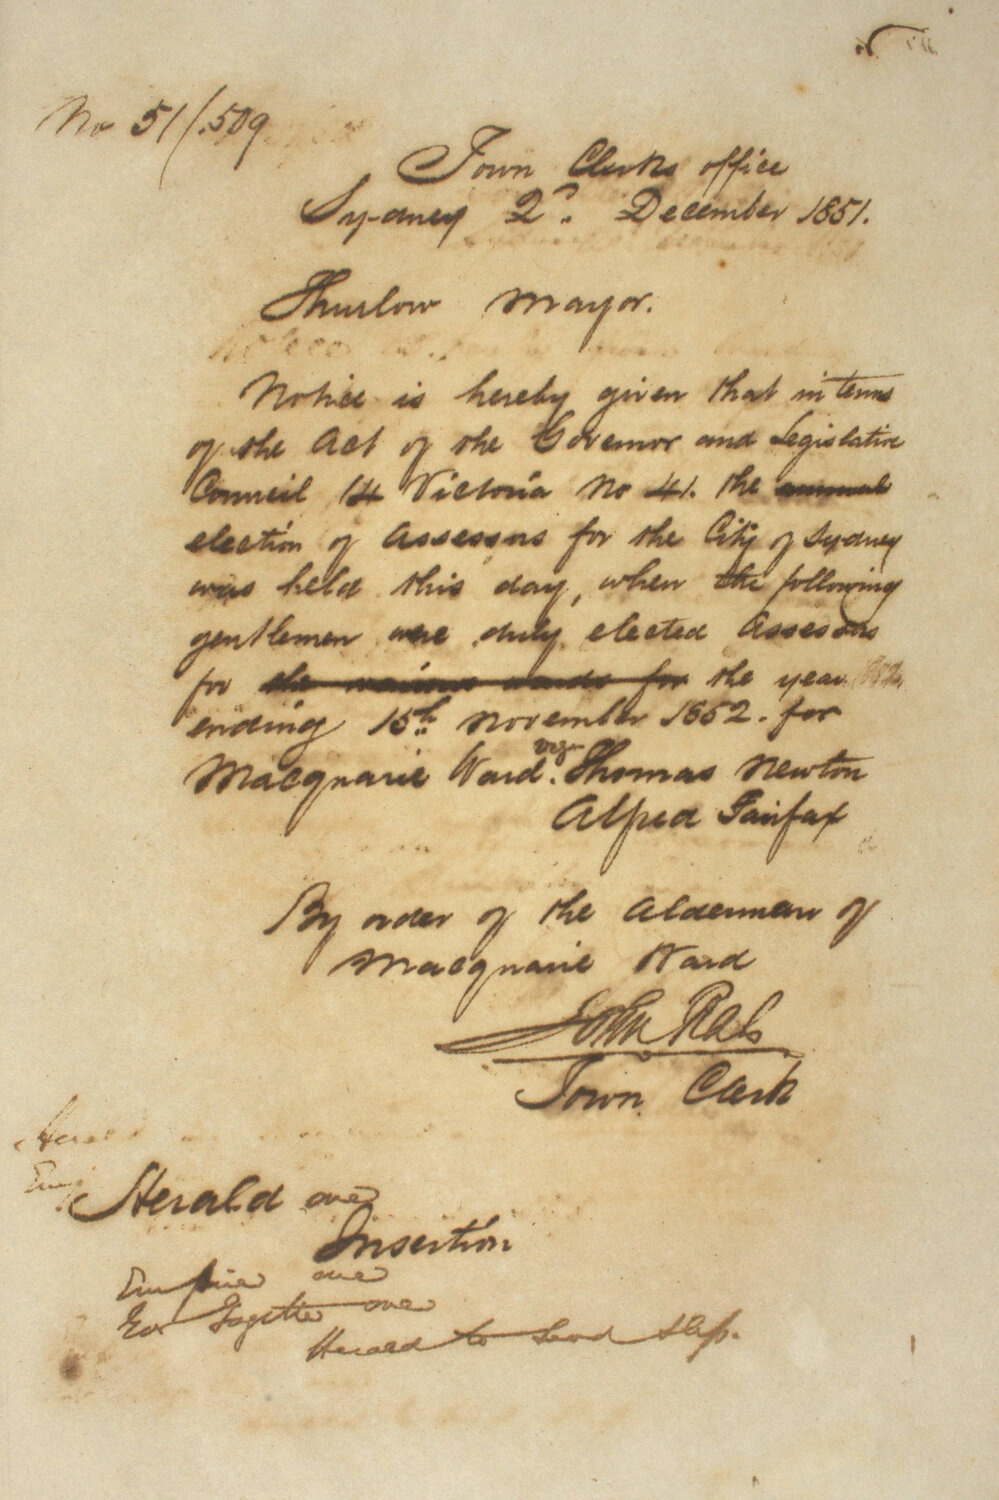 No 51/.509
Town Clerks office
Sydney 2d. December 1851.
Thurlow Mayor.
Notice is hereby given that in terms
of the Act of the Governor and Legislative
Council 14 Victoria No 41. the annual
election of Assessors for the City of Sydney
was held this day, when the following
gentlemen were duly elected Assessors
for the various wards for the year 1852
ending 15th November 1852. for
Macquarie Ward. viz. Thomas Newton
Alfred Fairfax
By order of the Aldermen of
Macquarie Ward
John Rae
Town Clerk
Herald one
Insertion
Empire one
Gov Gazette one
Herald to send slip.